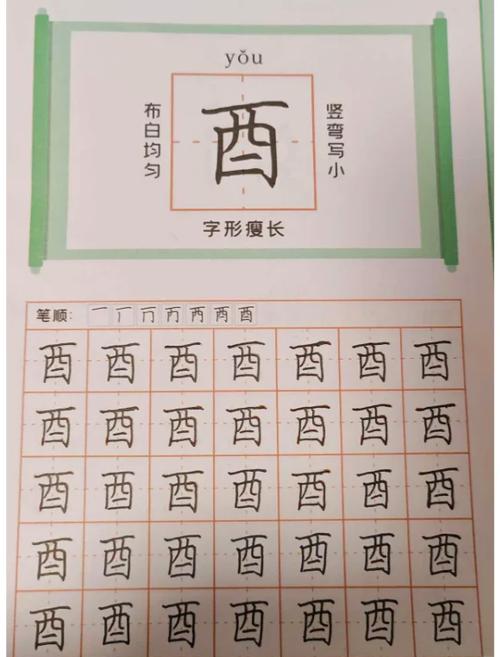 yǒu
布白均匀
酉
竖弯写小
字形瘦长
笔顺: 一 丆 丙 襾 西 酉
酉 酉 酉 酉 酉 酉 酉
酉 酉 酉 酉 酉 酉 酉
酉 酉 酉 酉 酉 酉 酉
酉 酉 酉 酉 酉 酉 酉
酉 酉 酉 酉 酉 酉 酉